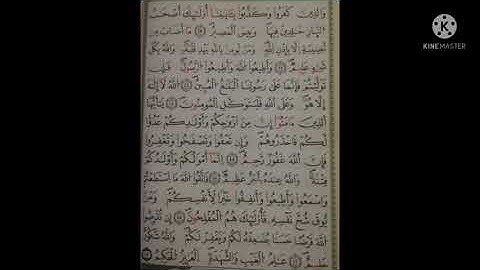 وَالَّذِينَ كَفَرُوا وَكَذَّبُوا بِآيَاتِنَا أُولَٰئِكَ أَصْحَابُ
النَّارِ خَالِدِينَ فِيهَا وَبِئْسَ الْمَصِيرُ ١٠ مَا أَصَابَ مِن
مُّصِيبَةٍ إِلَّا بِإِذْنِ اللَّهِ وَمَن يُؤْمِن بِاللَّهِ يَهْدِ قَلْبَهُ وَاللَّهُ بِكُلِّ
شَيْءٍ عَلِيمٌ ١١ وَأَطِيعُوا اللَّهَ وَأَطِيعُوا الرَّسُولَ فَإِن
تَوَلَّيْتُمْ فَإِنَّمَا عَلَىٰ رَسُولِنَا الْبَلَاغُ الْمُبِينُ ١٢ اللَّهُ لَا إِلَٰهَ
إِلَّا هُوَ وَعَلَى اللَّهِ فَلْيَتَوَكَّلِ الْمُؤْمِنُونَ ١٣ يَا أَيُّهَا
الَّذِينَ آمَنُوا إِنَّ مِنْ أَزْوَاجِكُمْ وَأَوْلَادِكُمْ عَدُوًّا
لَّكُمْ فَاحْذَرُوهُمْ وَإِن تَعْفُوا وَتَصْفَحُوا وَتَغْفِرُوا
فَإِنَّ اللَّهَ غَفُورٌ رَّحِيمٌ ١٤ إِنَّمَا أَمْوَالُكُمْ وَأَوْلَادُكُمْ
فِتْنَةٌ وَاللَّهُ عِندَهُ أَجْرٌ عَظِيمٌ ١٥ فَاتَّقُوا اللَّهَ مَا اسْتَطَعْتُمْ
وَاسْمَعُوا وَأَطِيعُوا وَأَنفِقُوا خَيْرًا لِّأَنفُسِكُمْ وَمَن
يُوقَ شُحَّ نَفْسِهِ فَأُولَٰئِكَ هُمُ الْمُفْلِحُونَ ١٦ إِن تُقْرِضُوا
اللَّهَ قَرْضًا حَسَنًا يُضَاعِفْهُ لَكُمْ وَيَغْفِرْ لَكُمْ وَاللَّهُ شَكُورٌ
حَلِيمٌ ١٧ عَالِمُ الْغَيْبِ وَالشَّهَادَةِ الْعَزِيزُ الْحَكِيمُ ١٨
KINEMASTER